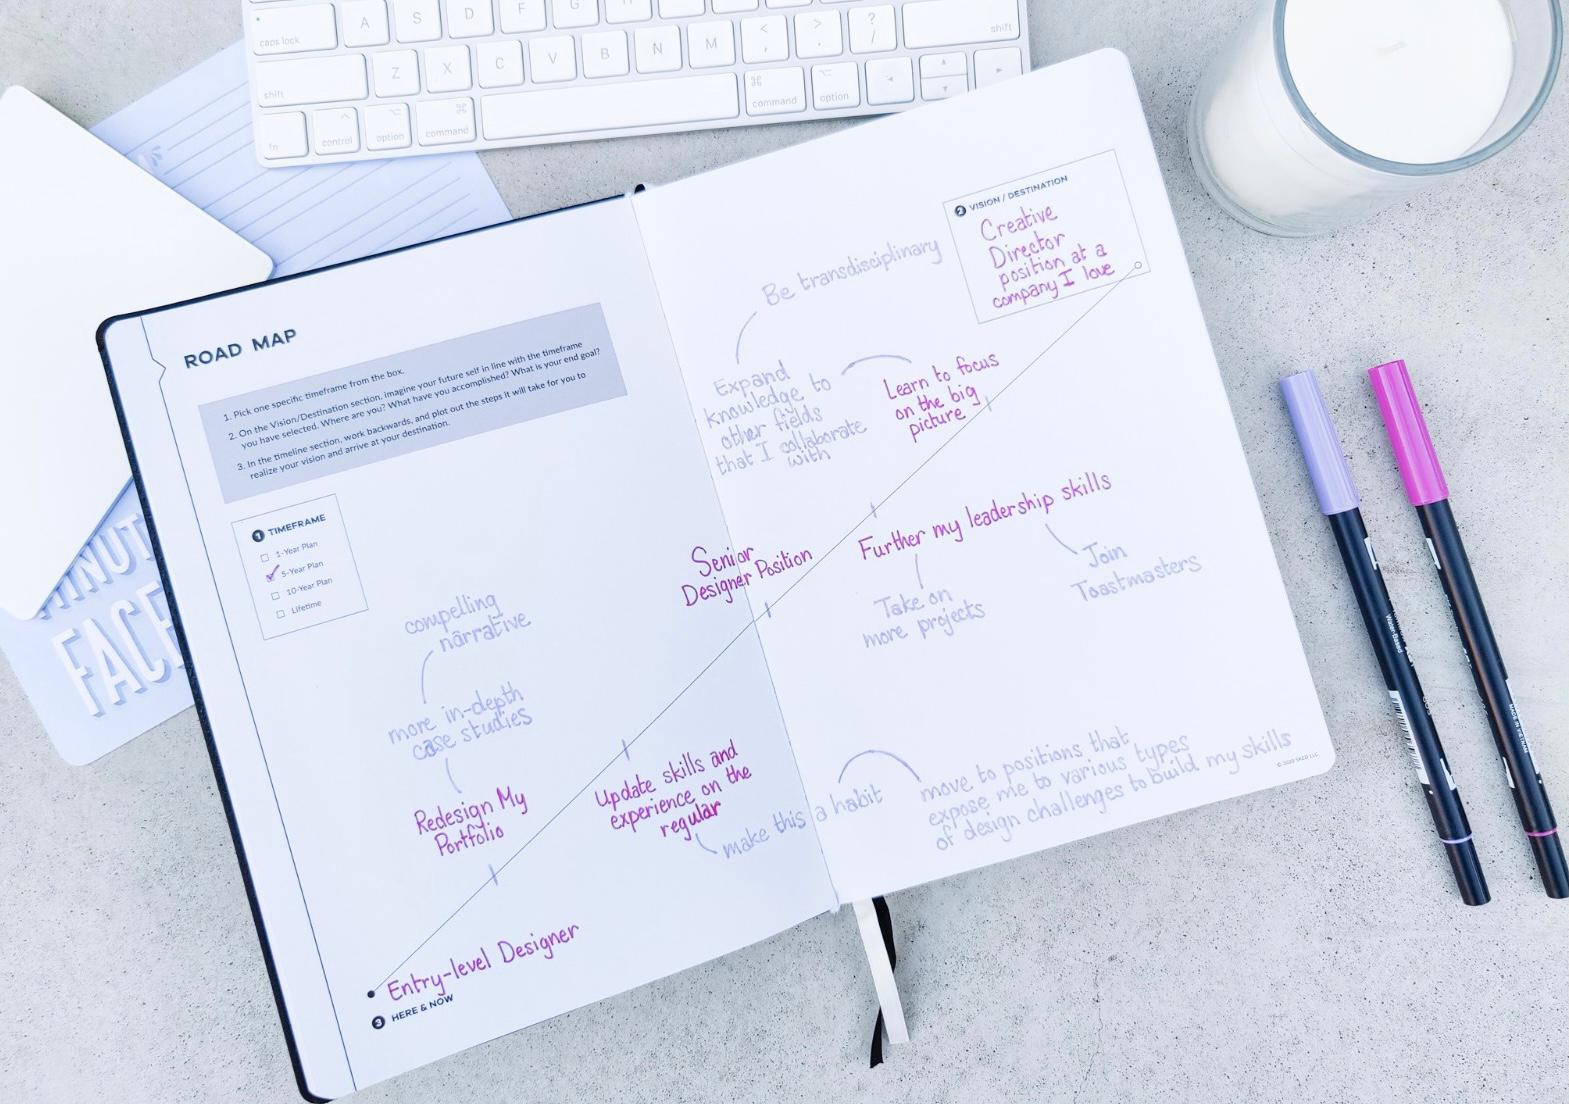 caps lock
A
S
D
F
G
shift
Z
X
C
V
B
N
M
<
,
>
.
?
/
shift
fn
control
option
command
command
option
ROAD MAP
1. Pick one specific timeframe from the box.
2. On the Vision/Destination section, imagine your future self in line with the timeframe
you have selected. Where are you? What have you accomplished? What is your end goal?
3. In the timeline section, work backwards, and plot out the steps it will take for you to
realize your vision and arrive at your destination.
1 TIMEFRAME
1-Year Plan
5-Year Plan
10-Year Plan
Lifetime
compelling
narrative
more in-depth
case studies
Redesign My
Portfolio
Entry-level Designer
3 HERE & NOW
Update skills and
experience on the
regular
make this a habit
move to positions that
expose me to various types
of design challenges to build my skills
Senior
Designer Position
Further my leadership skills
Take on
more projects
Join
Toastmasters
Be transdisciplinary
Expand
knowledge to
other fields
that I collaborate
with
Learn to focus
on the big
picture
2 VISION / DESTINATION
Creative
Director
position at a
company I love
FACE
Water-Based
MADE IN VIETNAM